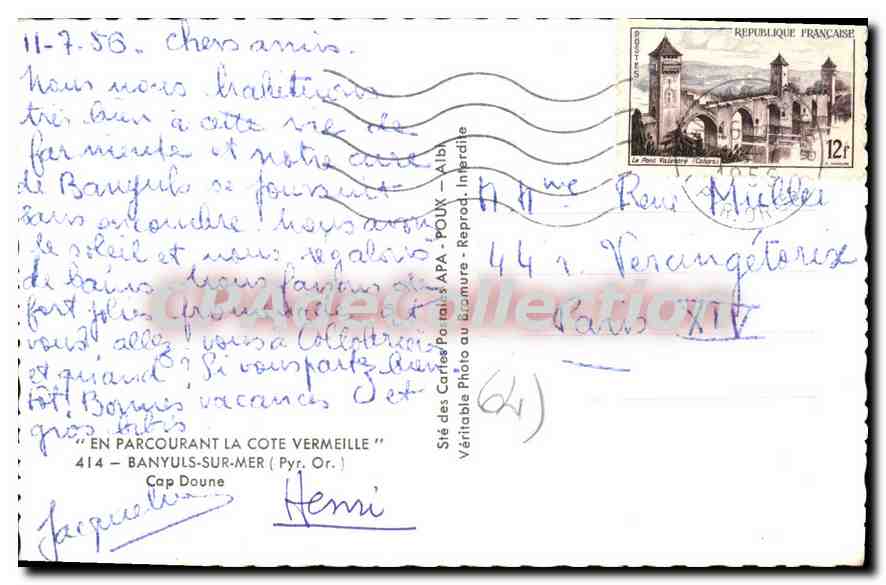 11-7-56. Chers amis.
Nous nous habituons
très bien à cette vie de
farniente et notre cure
de Banyuls se poursuit
sans encombre. Nous avons
le soleil et nous régalons
de bains. Nous faisons de
fort jolies promenades. Et
vous, allez vous à
et quand? Si vous partez bien-
tôt! Bonnes vacances et
gros bibis
"EN PARCOURANT LA COTE VERMEILLE"
414 – BANYULS-SUR-MER (Pyr. Or.)
Cap Doune
Jacqueline
Henri
Sté des Cartes Postales APA - POUX - Albi
Véritable Photo au Bromure - Reprod. Interdite
POSTES
REPUBLIQUE FRANÇAISE
Le Pont Valentré (Cahors)
12f
M. Mme René Müller
44 r. Vercingétorix
Paris XIV
64)
CPAdeCollection